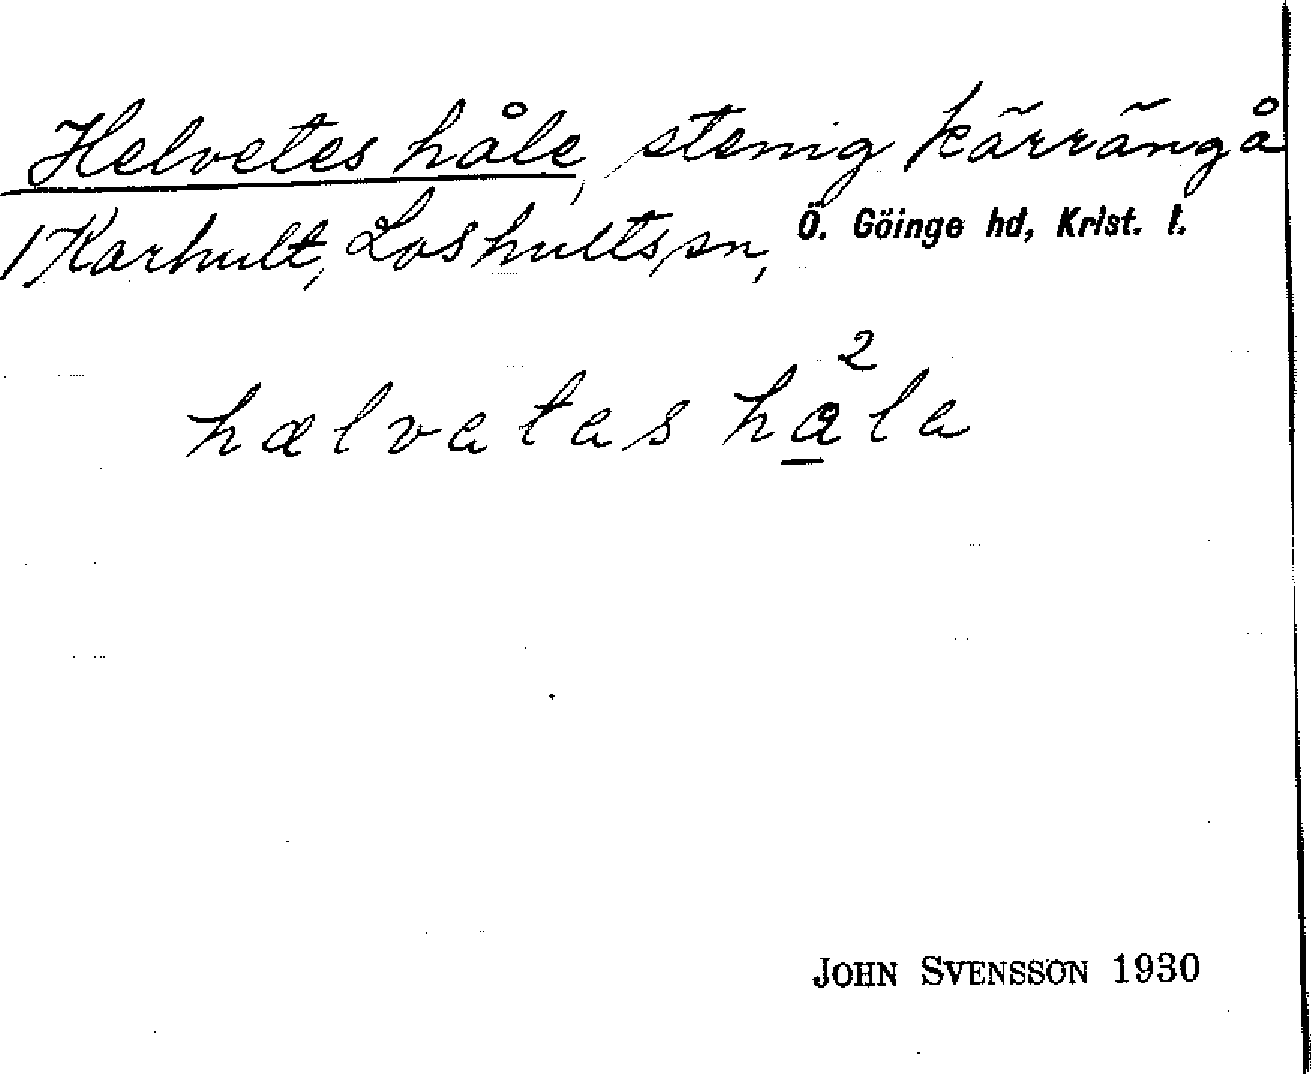 Helvetes håle, stenig kärräng å
1 Karhult, Loshults sn, Ö. Göinge hd, Krist. l.
hælvatas håla
2
JOHN SVENSSON 1930